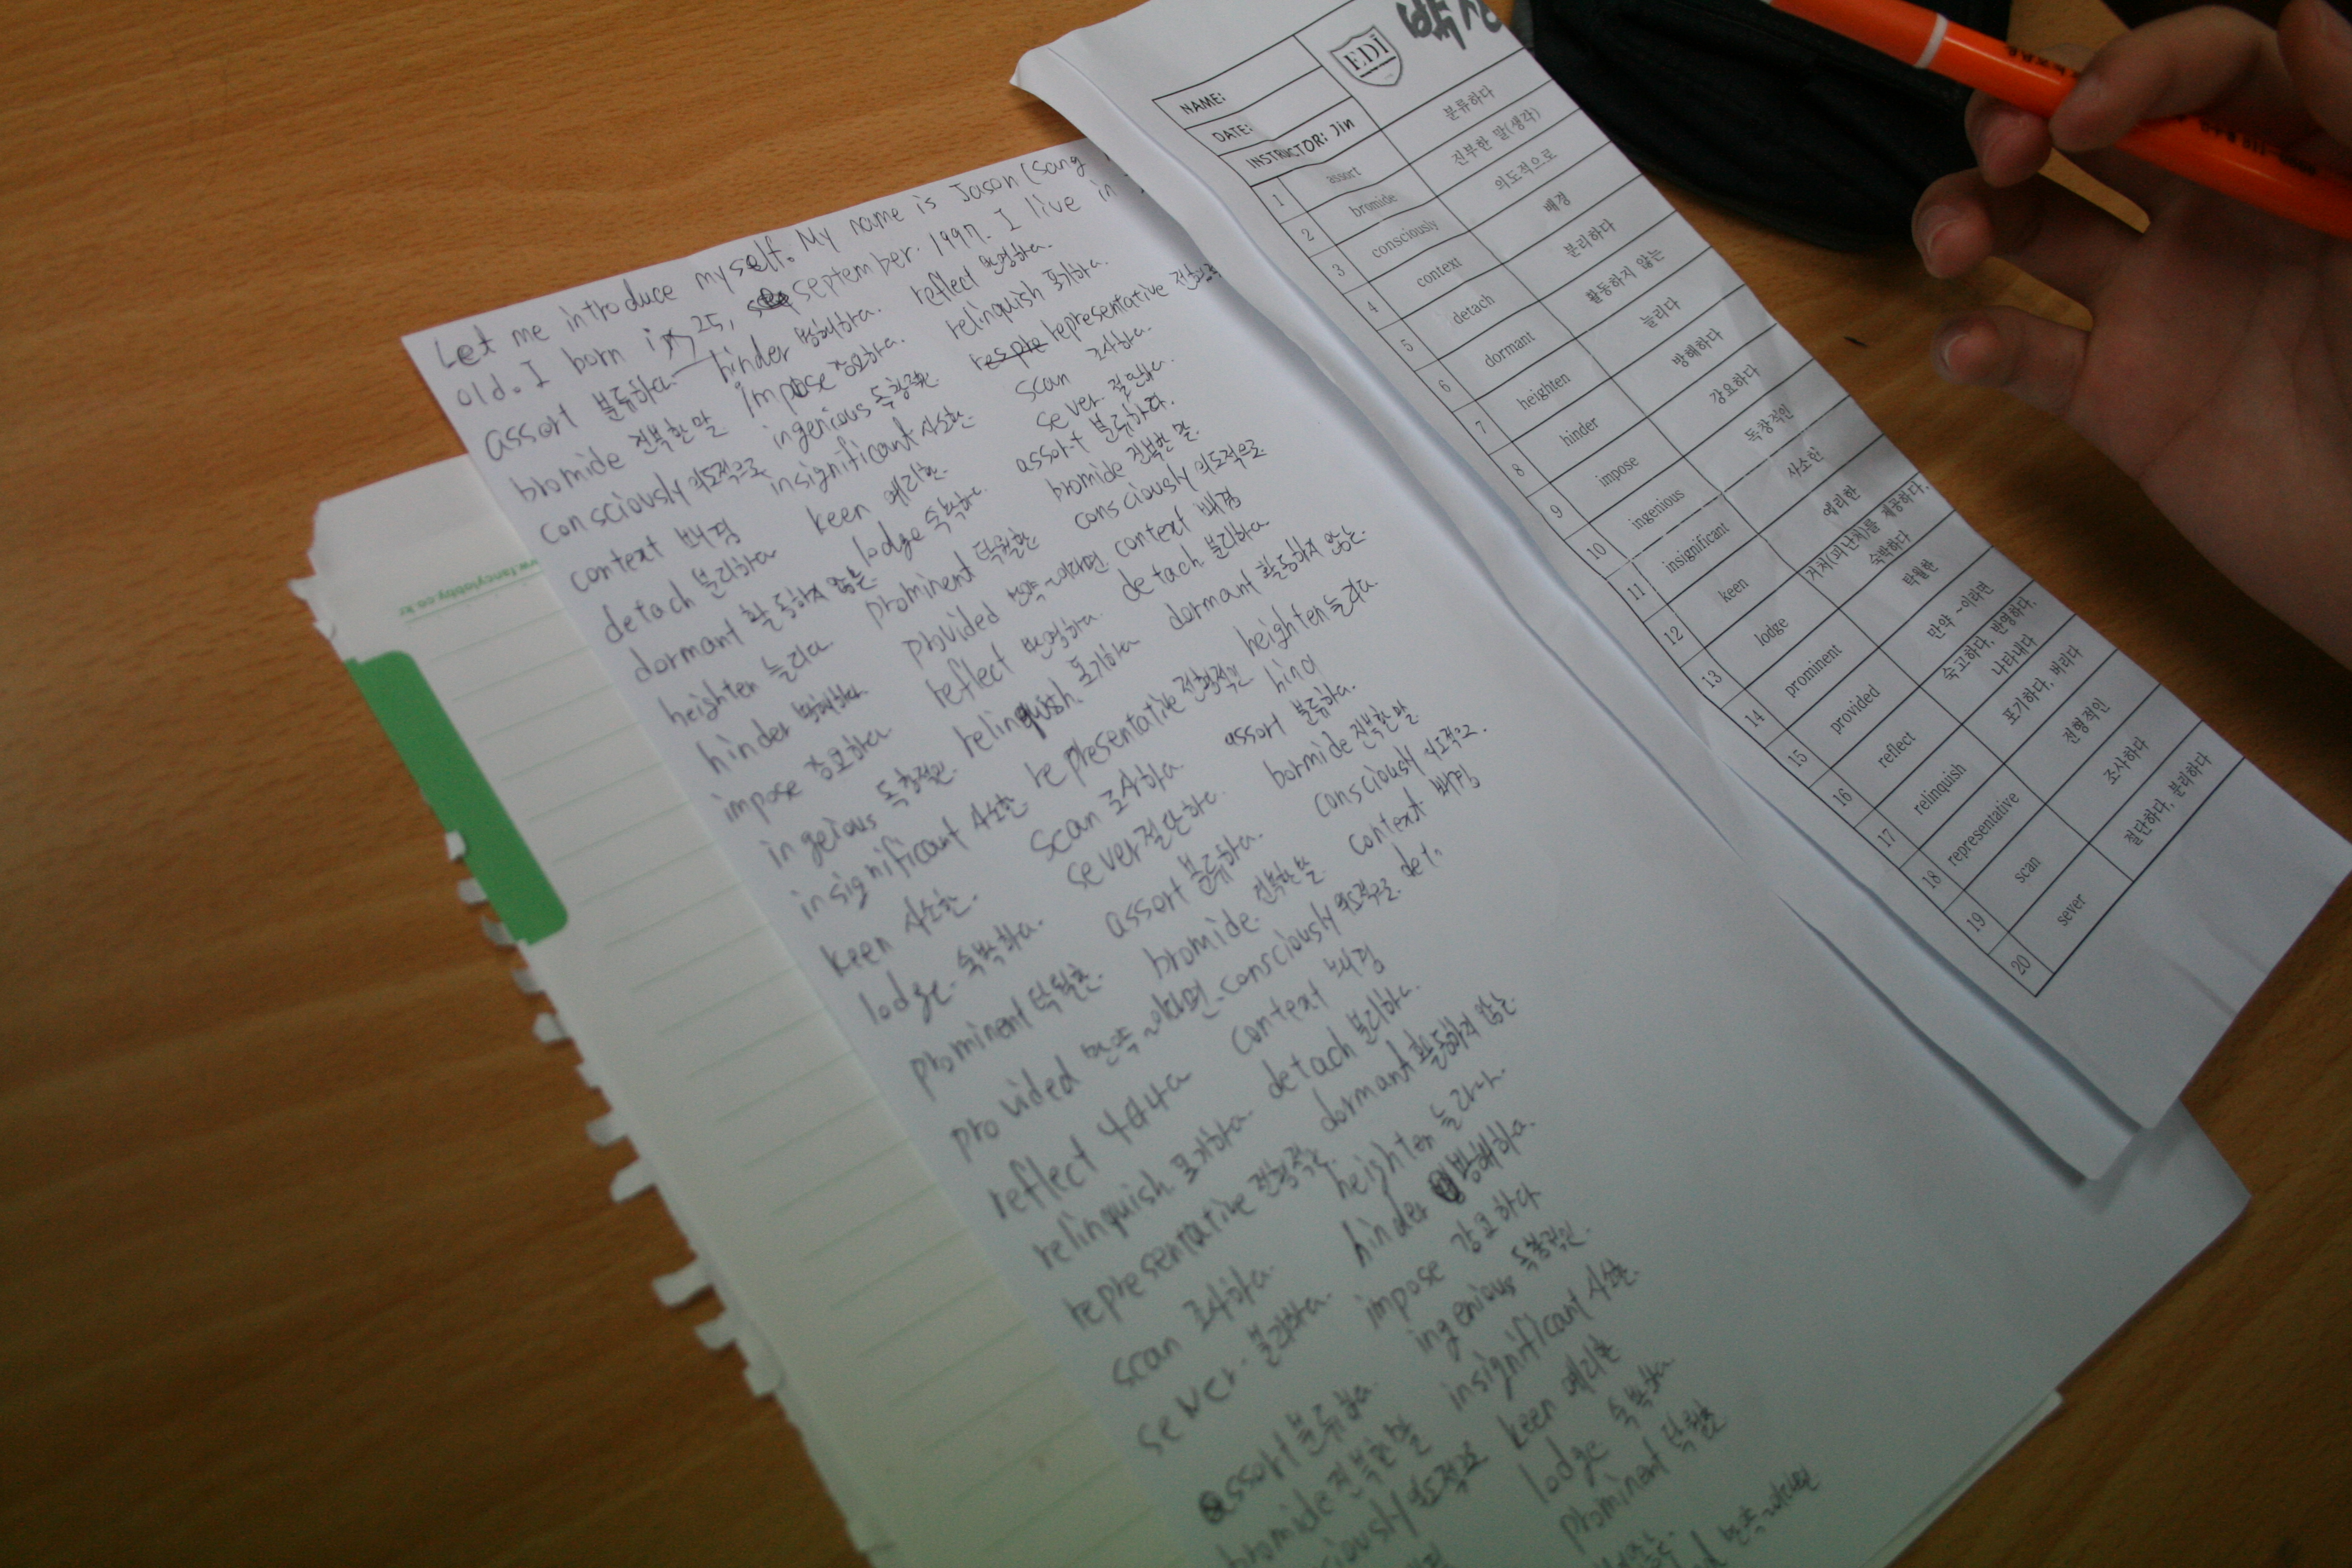 Let me introduce myself. My name is Jason (Sang
old. I born in 25, september. 1997. I live in
assort 분류하다 hinder 방해하다. reflect 반영하다.
bromide 진부한말 impose 강요하다. relinquish 포기하다.
consciously 의도적으로 ingenious 독창적인 representative
context 배경 insignificant 사소한 scan 조사하다.
detach 분리하다 keen 예리한. sever 절단하다.
dormant 활동하지 않는 lodge 숙박하다. assort 분류하다.
heighten 늘리다 prominent 탁월한 bromide 진부한 말.
hinder 방해하다 provided 만약~이라면 consciously 의도적으로
impose 강요하다 reflect 반영하다. context 배경
ingeious 독창적인 relinquish 포기하다 detach 분리하다
insignificant 사소한 representative 전형적인 dormant 활동하지 않는.
keen 사소한. scan 조사하다 heighten 늘리다
lodge. 숙박하다. sever 절단하다. hind
prominent 탁월한. assort 분류하다. assort 분류하다.
provided 만약~이라면 bromide. 진부한말 bormide 진부한말
reflect 나타나다 consciously 의도적으로. consciously 의도적으로.
relinquish 포기하다 context 배경 context 배경
representative 전형적인 detach 분리하다. det
scan 조사하다. dormant 활동하지 않는
sever. 분리하다. heighten 늘리다.
assort 분류하다. hinder 방해하다.
bromide 진부한말 impose 강요하다
ciously 의도적으로 ingenious 독창적인.
insignificant 사소한.
keen 예리한
lodge 숙박하다
prominent 탁월한
만약~이라면
www.fancylobby.co.kr
NAME:
EDI
DATE:
INSTRUCTOR: Jin
1 assort 분류하다
2 bromide 진부한 말(생각)
3 consciously 의도적으로
4 context 배경
5 detach 분리하다
6 dormant 활동하지 않는
7 heighten 늘리다
8 hinder 방해하다
9 impose 강요하다
10 ingenious 독창적인
11 insignificant 사소한
12 keen 예리한
13 lodge 거처(피난처)를 제공하다, 숙박하다
14 prominent 탁월한
15 provided 만약 ~이라면
16 reflect 숙고하다, 반영하다, 나타내다
17 relinquish 포기하다, 버리다
18 representative 전형적인
19 scan 조사하다
20 sever 절단하다, 분리하다